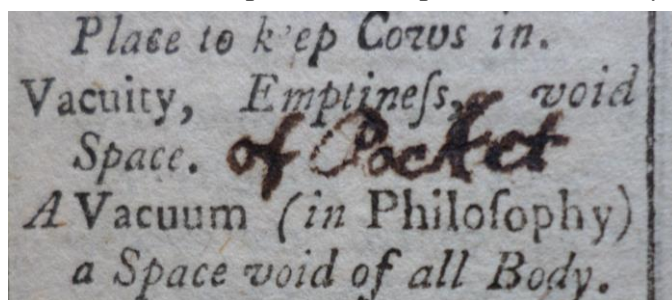 Place to keep Cows in.
Vacuity, Emptineſs, void
Space. of Pocket
A Vacuum (in Philoſophy)
a Space void of all Body.